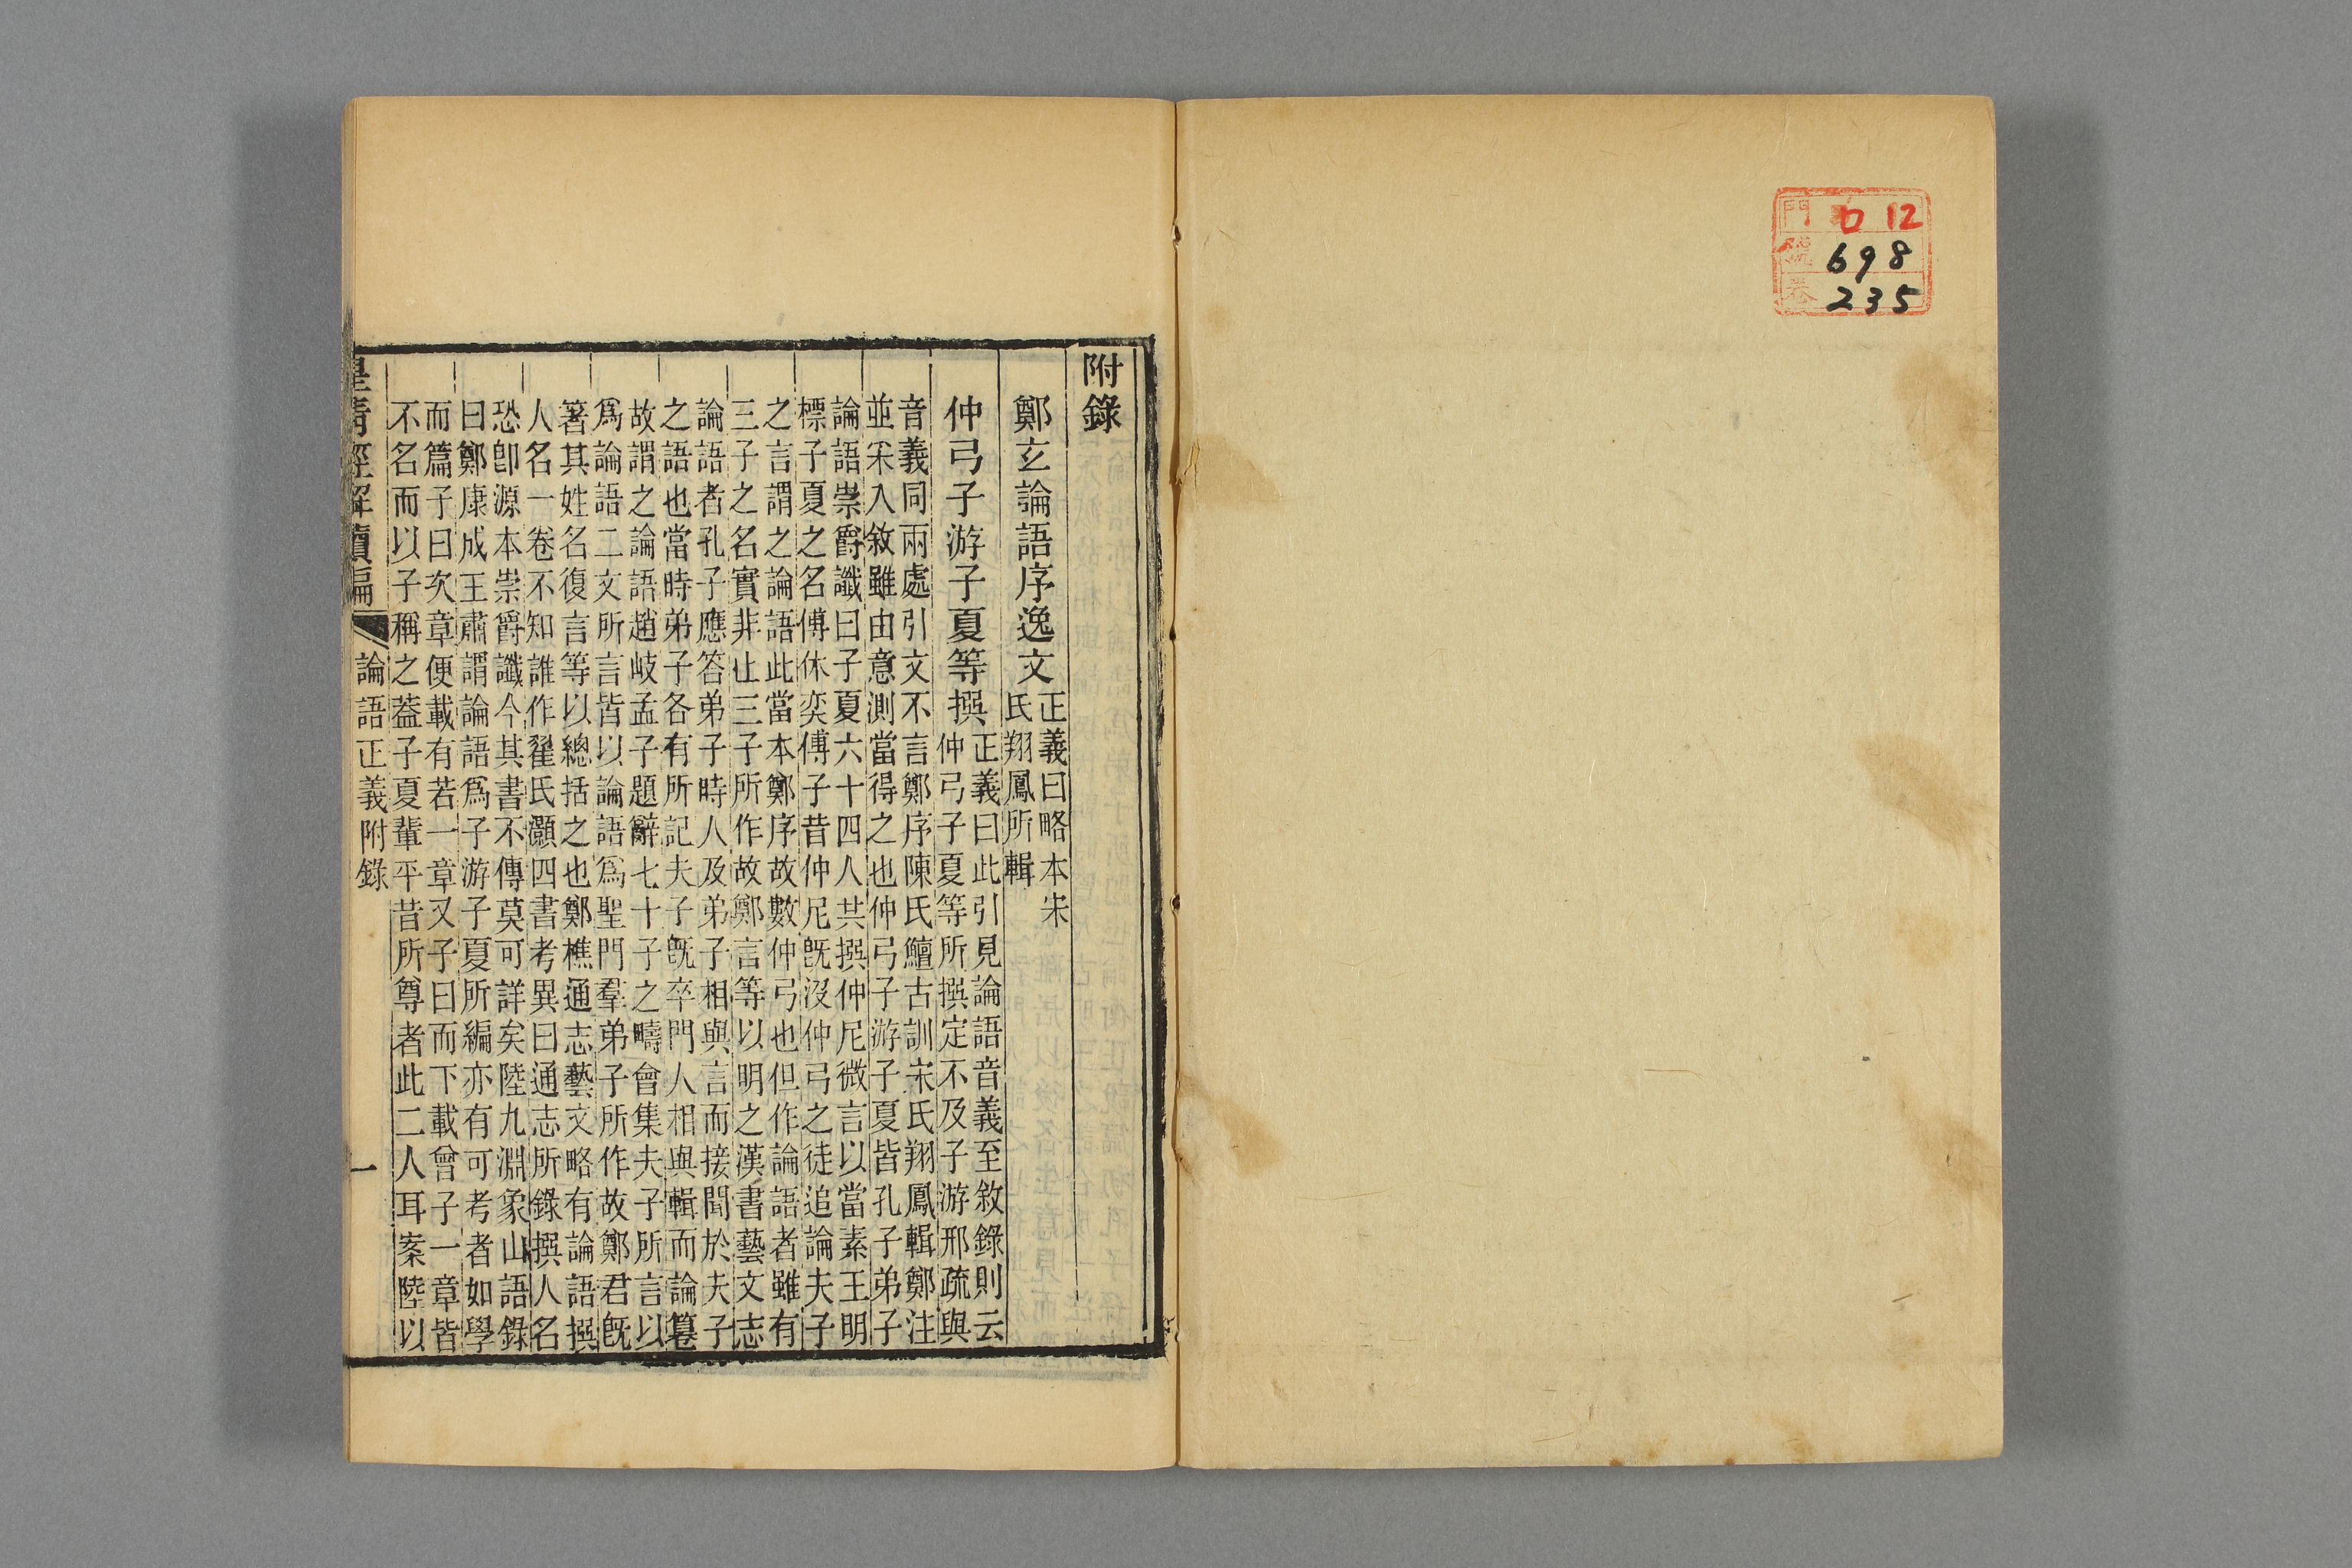 門 ロ 12
號 698
卷 235
附錄
鄭玄論語序逸文
正義曰略本宋
氏翔鳳所輯
仲弓子游子夏等撰
正義曰此引見論語音義至敘錄則云
仲弓子夏等所撰定不及子游邢疏與
音義同兩處引文不言鄭序陳氏鱣古訓宋氏翔鳳輯鄭注
並采入敘雖由意測當得之也仲弓子游子夏皆孔子弟子
論語崇爵讖曰子夏六十四人共撰仲尼微言以當素王明
標子夏之名傅休奕傅子昔仲尼旣沒仲弓之徒追論夫子
之言謂之論語此當本鄭序故數仲弓也但作論語者雖有
三子之名實非止三子所作故鄭言等以明之漢書藝文志
論語者孔子應答弟子時人及弟子相與言而接聞於夫子
之語也當時弟子各有所記夫子旣卒門人相與輯而論篹
故謂之論語趙岐孟子題辭七十子之疇會集夫子所言以
爲論語二文所言皆以論語爲聖門羣弟子所作故鄭君旣
箸其姓名復言等以總括之也鄭樵通志藝文略有論語撰
人名一卷不知誰作翟氏灝四書考異曰通志所錄撰人名
恐卽源本崇爵讖今其書不傳莫可詳矣陸九淵象山語錄
曰鄭康成王肅謂論語爲子游子夏所編亦有可考者如學
而篇子曰次章便載有若一章又子曰而下載曾子一章皆
不名而以子稱之蓋子夏輩平昔所尊者此二人耳案陸以
皇清經解續編 論語正義附錄 一